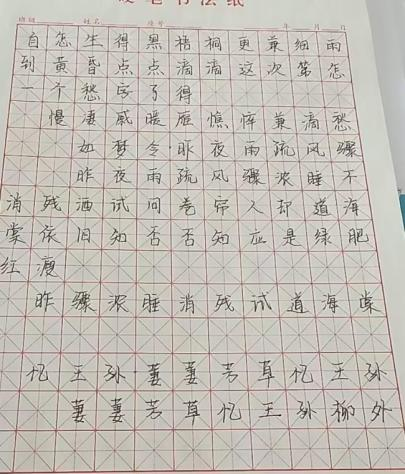 硬笔书法纸
班级 姓名 座号 年 月 日
自怎生得黑梧桐更兼细雨
到黄昏点点滴滴这次第怎
一个愁字了得
慢凄戚暖雁憔悴兼滴愁
如梦令昨夜雨疏风骤
昨夜雨疏风骤浓睡不
消残酒试问卷帘人却道海
棠依旧知否否知应是绿肥
红瘦
昨骤浓睡消残试道海棠
忆王孙萋萋芳草忆王孙
萋萋芳草忆王孙柳外